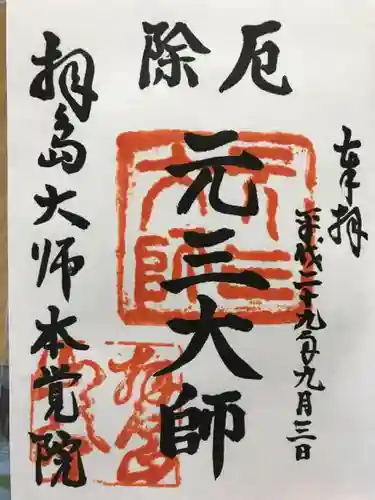 奉拝
平成二十九年九月三日
厄除
元三大師
拝島大师本覚院
元三大師